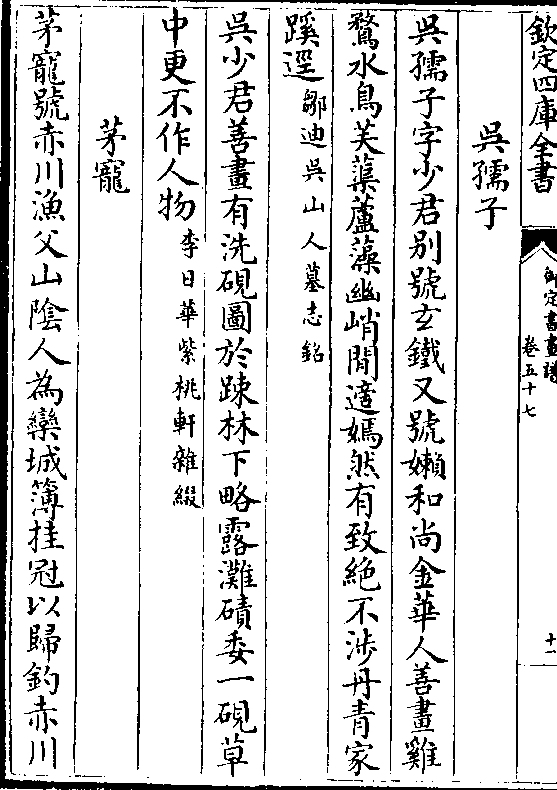 欽定四庫全書
御定書畫譜
卷五十七
十一
吳孺子
吳孺子字少君别號玄鐵又號嬾和尚金華人善畫雞
鶩水鳥芙蕖蘆藻幽峭閒適嫣然有致絶不涉丹青家
蹊逕鄒迪吳山人墓志銘
吳少君善畫有洗硯圖於踈林下略露灘磧委一硯草
中更不作人物李日華紫桃軒雜綴
茅寵
茅寵號赤川漁父山隂人為欒城簿挂冠以歸釣赤川